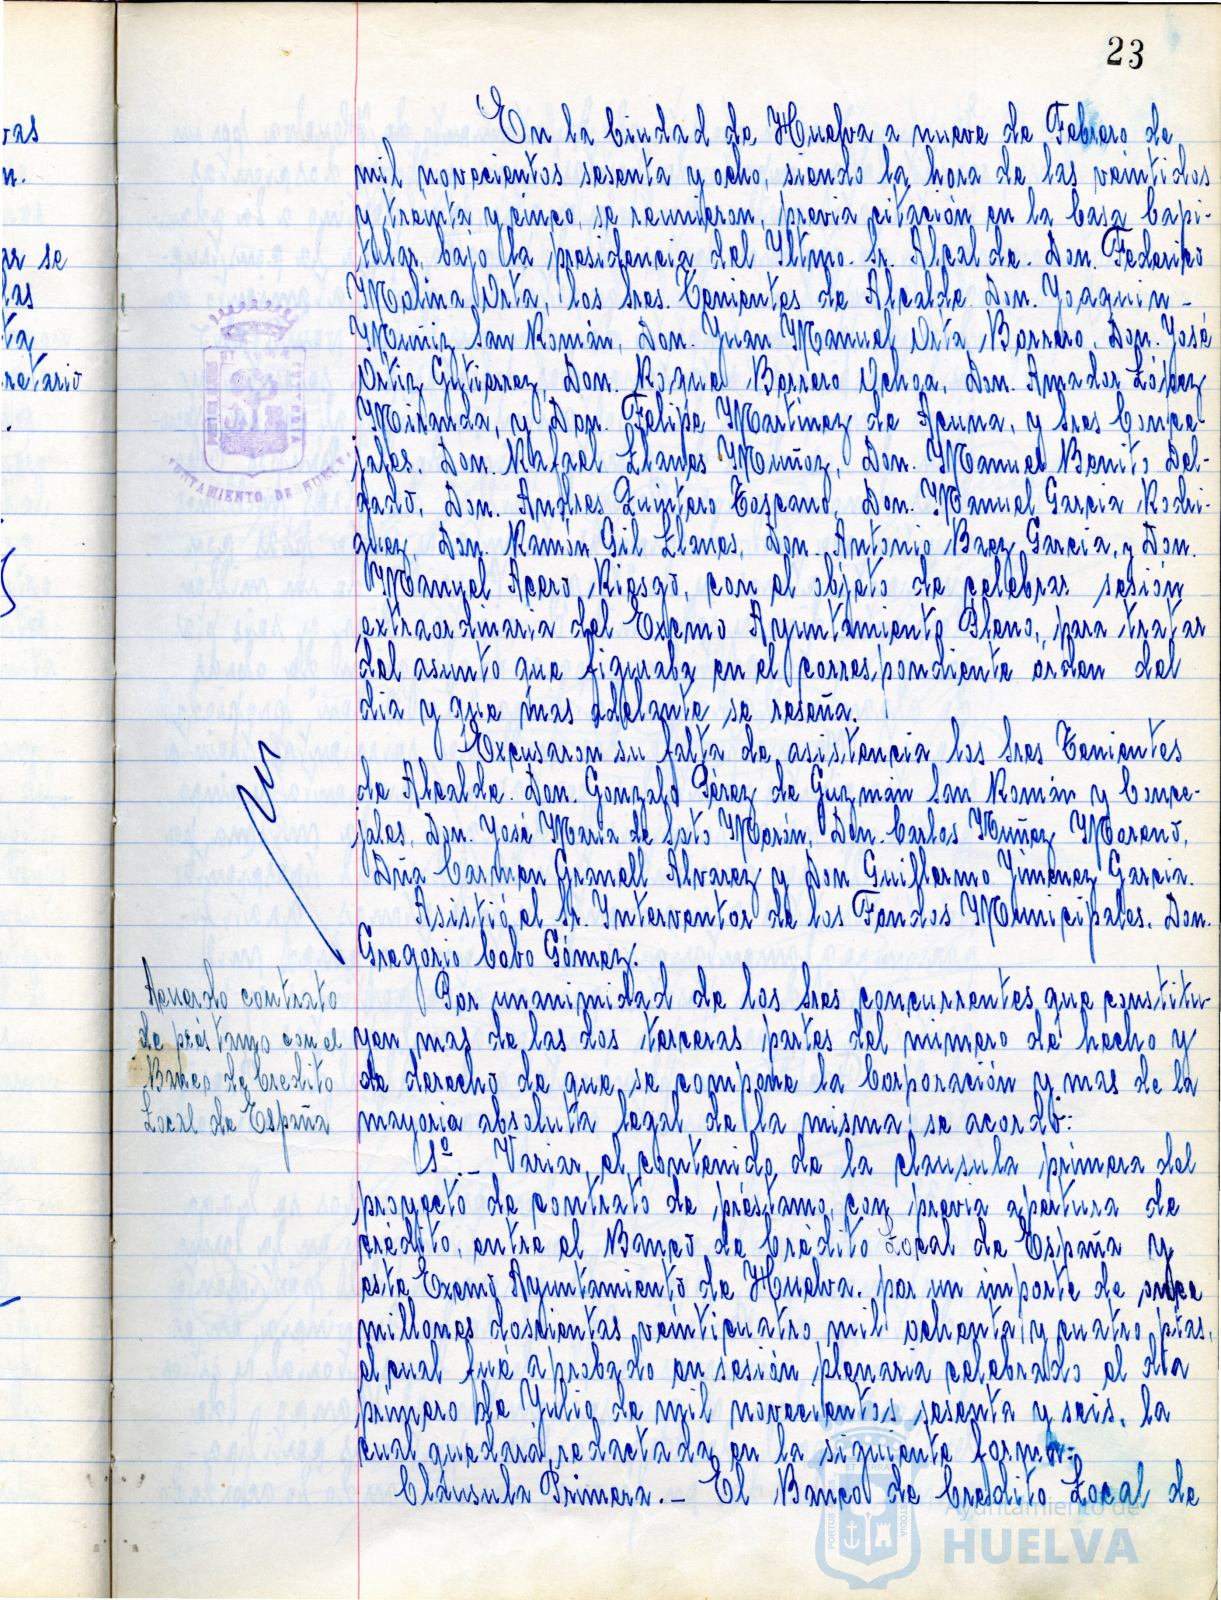 23
En la Ciudad de Huelva a nueve de Febrero de
mil novecientos sesenta y ocho, siendo la hora de las veintidos
y treinta y cinco, se reunieron, previa citación en la Casa Capi-
tular, bajo la presidencia del Iltmo. Sr. Alcalde. Don. Federico
Molina Orta, los Sres. Tenientes de Alcalde Don. Joaquin -
Muñiz San Román, Don. Juan Manuel Orta Borrero, Don. José
Ortiz Gutierrez, Don. Roque Borrero Ochoa, Don. Amador López
Miranda, y Don. Felipe Martínez de Acuna, y Sres Conce-
jales, Don. Rafael Llanes Muñoz, Don. Manuel Benito Del-
gado, Don. Andres Quintero Toscano, Don. Manuel Garcia Rodri-
guez, Don. Ramón Gil Llanes, Don. Antonio Baez Garcia, y Don.
Manuel Acero Riesgo, con el objeto de celebrar sesión
extraordinaria del Excmo Ayuntamiento Pleno, para tratar
del asunto que figuraba en el correspondiente órden del
dia y que mas adelante se reseña.
Excusaron su falta de asistencia los Sres Tenientes
de Alcalde. Don. Gonzalo Pérez de Guzmán San Román y Conce-
jales, Don. José Maria de Soto Morón, Don. Carlos Muñoz Moreno,
Dña Carmen Granell Alvarez y Don Guillermo Jiménez Garcia.
Asistió el Sr. Interventor de los Fondos Municipales. Don.
Gregorio Cobo Gómez.
Acuerdo contrato
de préstamo con el
Banco de Credito
Local de España
Por unanimidad de los Sres concurrentes que constitu-
yen mas de las dos terceras partes del número de hecho y
de derecho de que se compone la Corporación y mas de la
mayoria absoluta legal de la misma, se acordó:
1º.- Variar el contenido de la clausula primera del
proyecto de contrato de préstamo, con previa apertura de
crédito, entre el Banco de Crédito Local de España y
este Excmo Ayuntamiento de Huelva. por un importe de once
millones doscientas veinticuatro mil ochenta y cuatro ptas.
el cual fué aprobado en sesión plenaria celebrado el dia
primero de Julio de mil novecientos sesenta y seis, la
cual quedara redactada en la siguiente forma:
Cláusula Primera.- El Banco de Credito Local de
AYUNTAMIENTO DE HUELVA
Ayuntamiento de
HUELVA
ras
n.
se
las
ta
retario